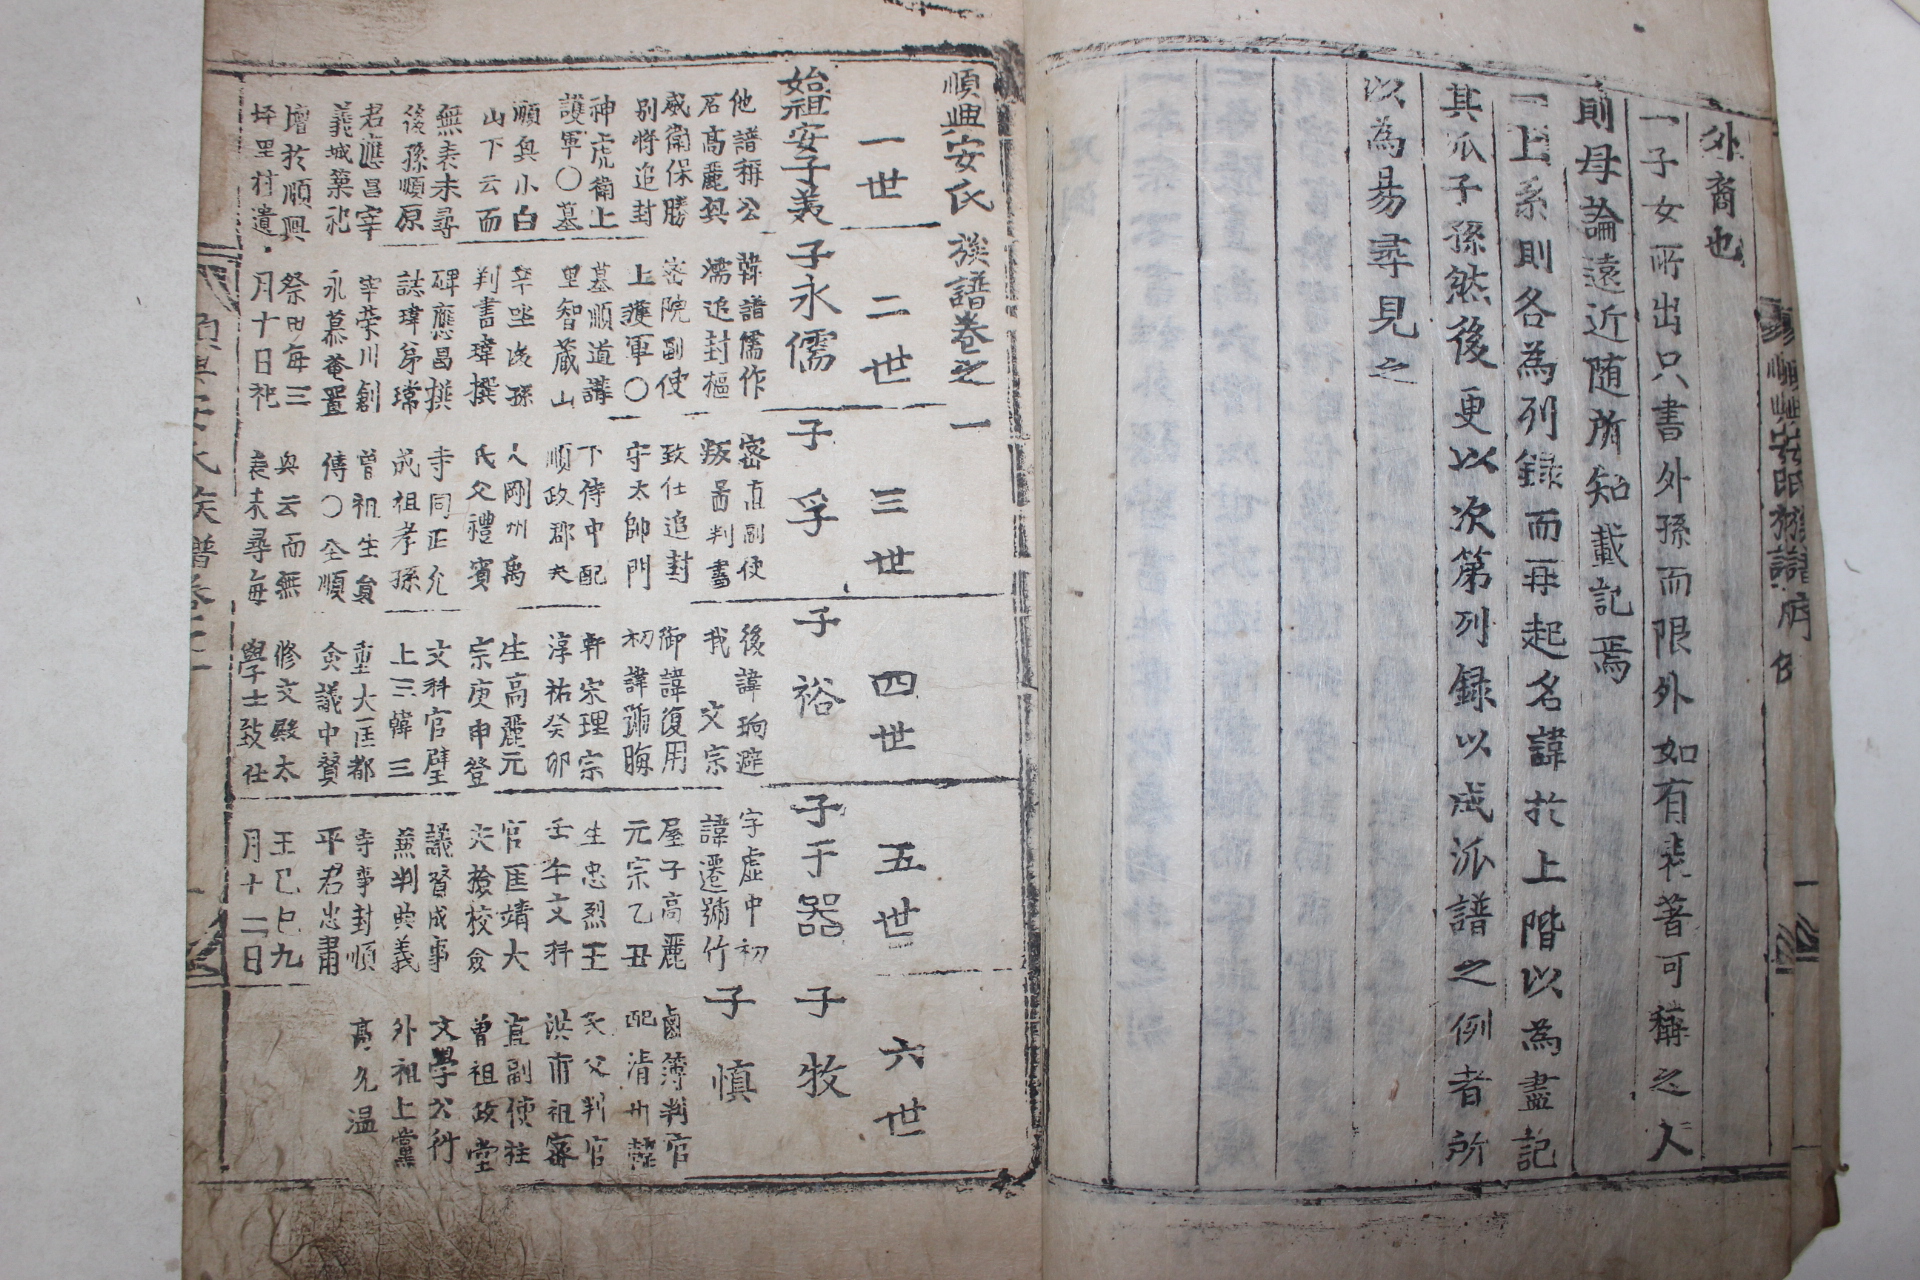 順興安氏族譜
一
外裔也
一子女所出只書外孫而限外如有表著可稱之人
則母論遠近随所知載記焉
一上系則各為列録而再起名諱於上階以為盡記
其派子孫然後更以次第列録以成派譜之例者所
以為易尋見之
順興安氏族譜卷之一
一世
始祖安子美
他譜稱公
名高麗興
威衛保勝
別將追封
神虎衛上
護軍〇墓
順興小白
山下云而
無表未尋
後孫順原
君應昌宰
義城 祀
增於順興
坪里村遺
二世
子永儒
韓譜儒作
濡追封樞
密院副使
上護軍〇
墓順道溝
里智蔵山
辛坐後孫
判書瑋撰
碑應昌撰
誌瑋弟瑺
宰荣川創
永慕菴置
祭田每三
月十日祀
三世
子孚
密直副使
版圖判書
致仕追封
守太師門
下侍中配
順政郡夫
人剛州禹
氏父禮賓
寺同正允
成祖孝孫
曾祖生員
傳〇 順
興云而無
表未尋每
四世
子裕
後諱珦避
我 文宗
御諱復用
初諱號晦
軒宋理宗
淳祐癸卯
生高麗元
宗庚申登
文科官壁
上三韓三
重大匡都
僉議中賛
修文殿太
學士致仕
五世
子于器
字虛中初
諱遷號竹
屋子高麗
元宗乙丑
生忠烈王
壬午文科
官匡靖大
夫撿校僉
議賛成事
兼判典義
寺事封順
平君忠肅
王己巳九
月十二日
六世
子牧
子慎
鹵簿判官
配清州韓
氏父判官
洪甫祖密
直副使柱
曾祖政堂
文學公行
外祖上黨
高允温
順興安氏族譜卷之一
一